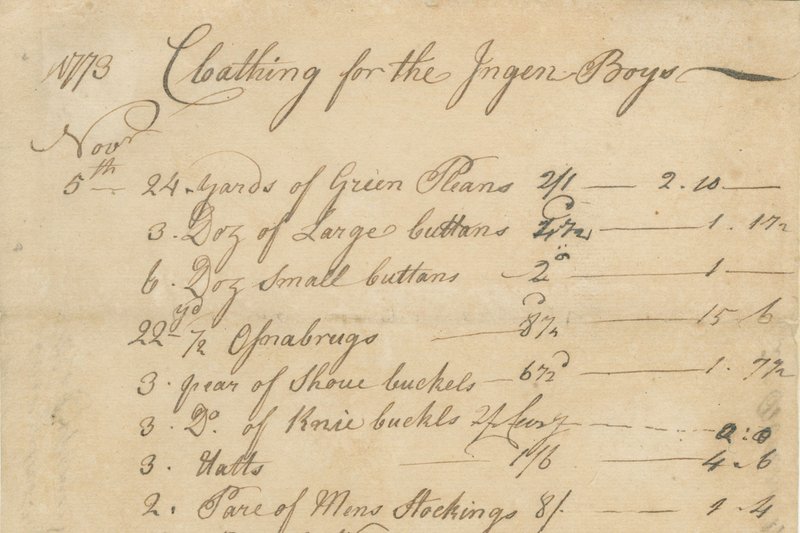 1773 Cloathing for the Ingen Boys
Novr
5th 24 yards of Grien Pleans 2/1 2.10
3. Doz of Large buttans 1.1 1/2
6. Doz small buttans 2d 1
22 yd 1/2 Osnabrugs 8d 1/2 15.6
3. pear of Shoue buckels 6 1/2d 1.7 1/2
3. Do. of Knie buckls 0:0
3. Hatts 1/6 4.6
2. Pare of Mens Stockings 8/. 1.4